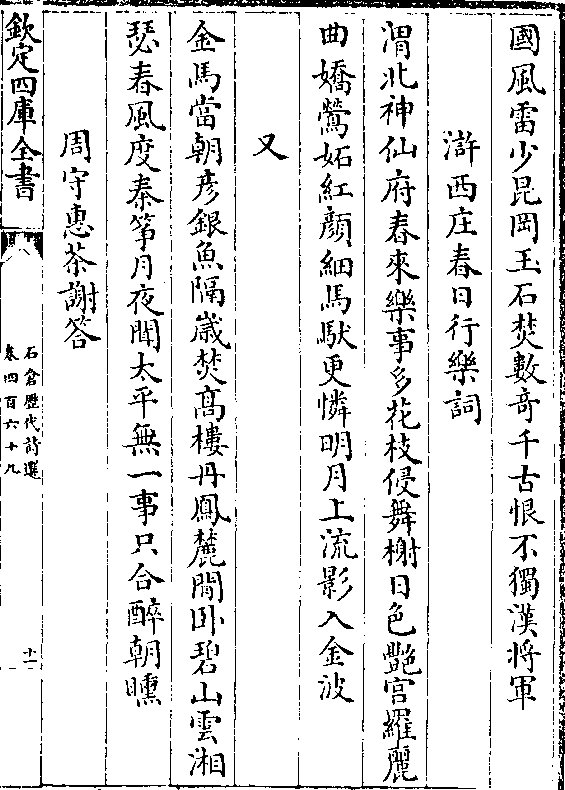 國風雷少昆岡玉石焚數竒千古恨不獨漢將軍
滸西庄春日行樂詞
渭北神仙府春來樂事多花枝侵舞榭日色艷宫羅麗
曲嬌鶯妬紅顔細馬馱更憐明月上流影入金波
又
金馬當朝彦銀魚隔歳焚髙樓丹鳳麓閒卧碧山雲湘
瑟春風度秦筝月夜聞太平無一事只合醉朝曛
周守惠茶謝答
欽定四庫全書
石倉歴代詩選
卷四百六十九
十一